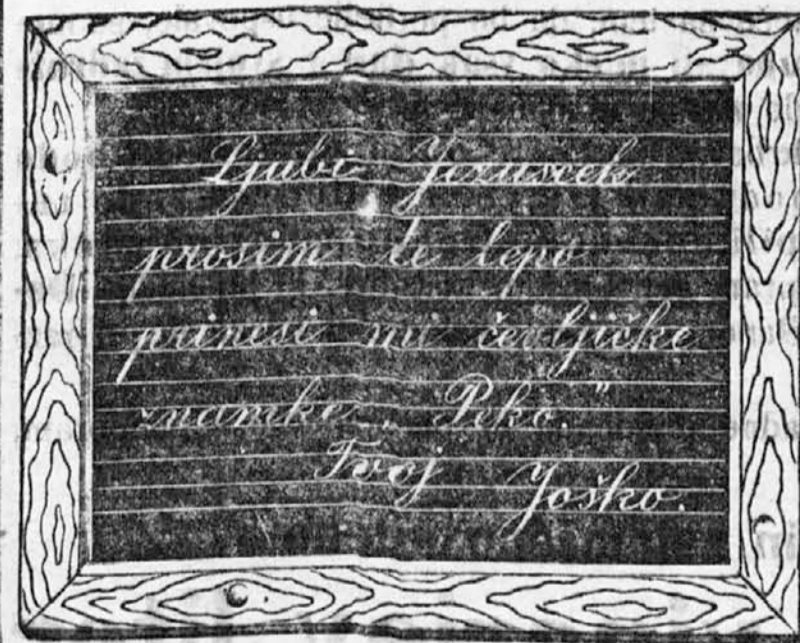 Ljubi Jezušček
prosim te lepo
prinesi mi čevljičke
znamke „Peko.“
Tvoj Joško.